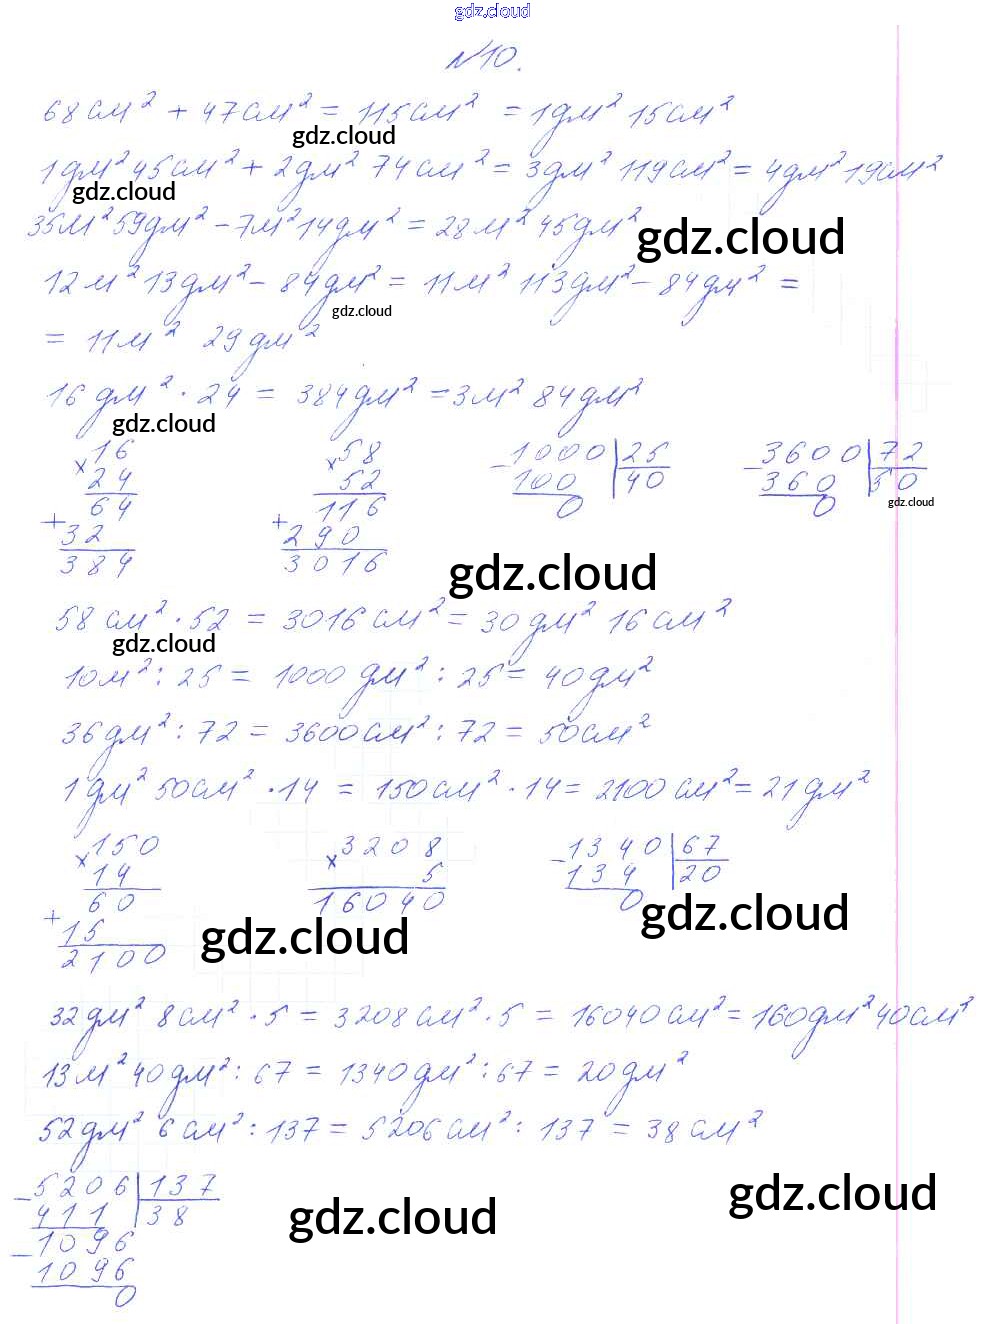 gdz.cloud
№10.
68 см² + 47 см² = 115 см² = 1 дм² 15 см²
gdz.cloud
1 дм² 45 см² + 2 дм² 74 см² = 3 дм² 119 см² = 4 дм² 19 см²
gdz.cloud
35 м² 59 дм² - 7 м² 14 дм² = 28 м² 45 дм²
gdz.cloud
12 м² 13 дм² - 84 дм² = 11 м² 113 дм² - 84 дм² =
gdz.cloud
= 11 м² 29 дм²
16 дм² · 24 = 384 дм² = 3 м² 84 дм²
gdz.cloud
× 16 × 58 - 1000 25 - 3600 72
24 52 100 40 360 50
64 116 0 0
gdz.cloud
+ 32 + 290
384 3016
gdz.cloud
58 см² · 52 = 3016 см² = 30 дм² 16 см²
gdz.cloud
10 м² : 25 = 1000 дм² : 25 = 40 дм²
36 дм² : 72 = 3600 см² : 72 = 50 см²
1 дм² 50 см² · 14 = 150 см² · 14 = 2100 см² = 21 дм²
× 150 × 3208 - 1340 67
14 5 134 20
60 16040 0
gdz.cloud
+ 15
gdz.cloud
2100
32 дм² 8 см² · 5 = 3208 см² · 5 = 16040 см² = 160 дм² 40 см²
13 м² 40 дм² : 67 = 1340 дм² : 67 = 20 дм²
52 дм² 6 см² : 137 = 5206 см² : 137 = 38 см²
- 5206 137
gdz.cloud
411 38
gdz.cloud
- 1096
1096
0